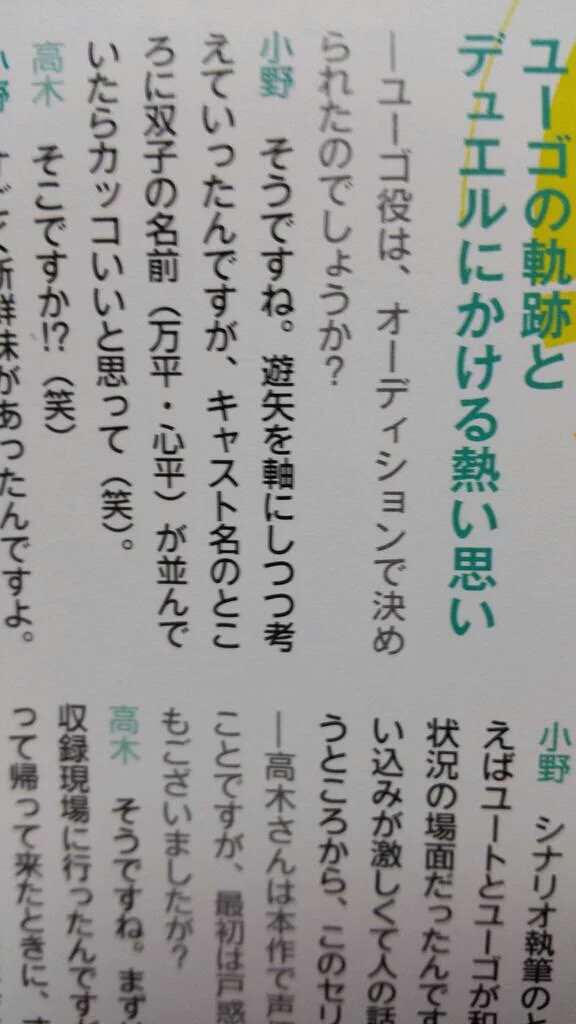 ユーゴの軌跡と
デュエルにかける熱い思い
―ユーゴ役は、オーディションで決め
られたのでしょうか?
小野 そうですね。遊矢を軸にしつつ考
えていったんですが、キャスト名のとこ
ろに双子の名前(万平・心平)が並んで
いたらカッコいいと思って(笑)。
高木 そこですか!?(笑)
小野 すごく新鮮味があったんですよ。
小野 シナリオ執筆の
えばユートとユーゴが和
状況の場面だったんです
い込みが激しくて人の話
うところから、このセリ
―高木さんは本作で声
ことですが、最初は戸惑
もございましたが?
高木 そうですね。まず
収録現場に行ったんです
って帰って来たときに、